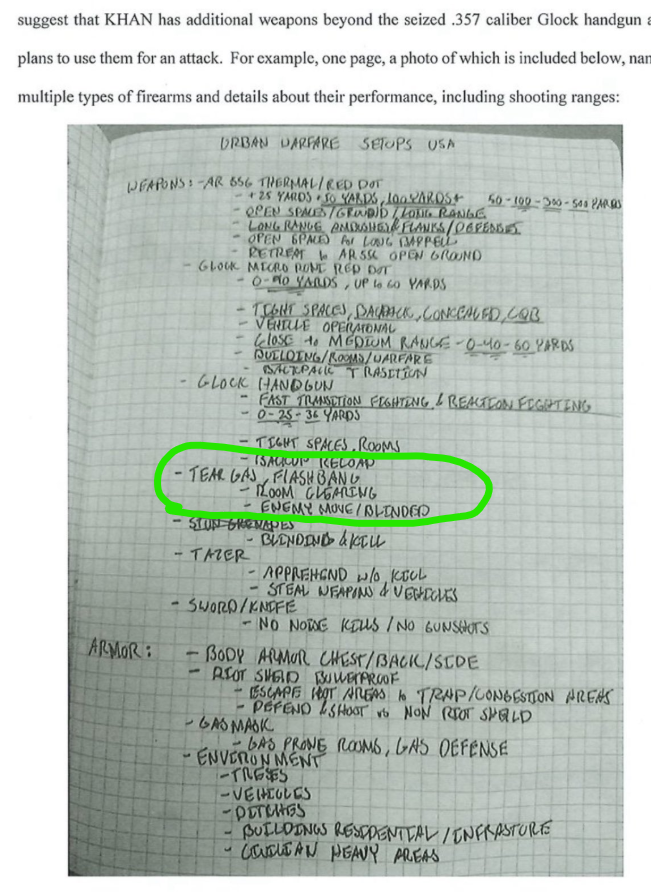 suggest that KHAN has additional weapons beyond the seized .357 caliber Glock handgun
plans to use them for an attack. For example, one page, a photo of which is included below,
multiple types of firearms and details about their performance, including shooting ranges:
URBAN WARFARE SETUPS USA
WEAPONS: - AR 556 THERMAL/RED DOT
- + 25 YARDS, 50 YARDS, 100 YARDS+ 50-100-300-500 YARDS
- OPEN SPACES/GROUND/LONG RANGE
- LONG RANGE AMBUSHES & FLANKS/DEFENSES
- OPEN SPACES for LONG BARRELL
- RETREAT to AR 556 OPEN GROUND
- GLOCK MICRO RONI RED DOT
- 0-40 YARDS, UP to 60 YARDS
- TIGHT SPACES, BACKPACK, CONCEALED, CQB
- VEHICLE OPERATONAL
- CLOSE to MEDIUM RANGE - 0-40-60 YARDS
- BUILDING/ROOMS/WARFARE
- BACKPACK TRASITION
- GLOCK HANDGUN
- FAST TRANSITION FIGHTING & REACTION FIGHTING
- 0-25-36 YARDS
- TIGHT SPACES, ROOMS
- BACKUP RELOAD
- TEAR GAS, FLASHBANG
- ROOM CLEARING
- ENEMY MOVE/BLINDED
- STUN GRENADES
- BLINDING & KILL
- TAZER
- APPREHEND w/o KILL
- STEAL WEAPONS & VEHICLES
- SWORD/KNIFE
- NO NOISE KILLS/NO GUNSHOTS
ARMOR: - BODY ARMOR CHEST/BACK/SIDE
- RIOT SHEILD BULLETPROOF
- ESCAPE HOT AREAS to TRAP/CONGESTION AREAS
- DEFEND & SHOOT vs NON RIOT SHEILD
- GAS MASK
- GAS PRONE ROOMS, GAS DEFENSE
- ENVIRONMENT
- TREES
- VEHICLES
- DITCHES
- BUILDINGS RESIDENTIAL/INFRASTURE
- CIVILIAN HEAVY AREAS